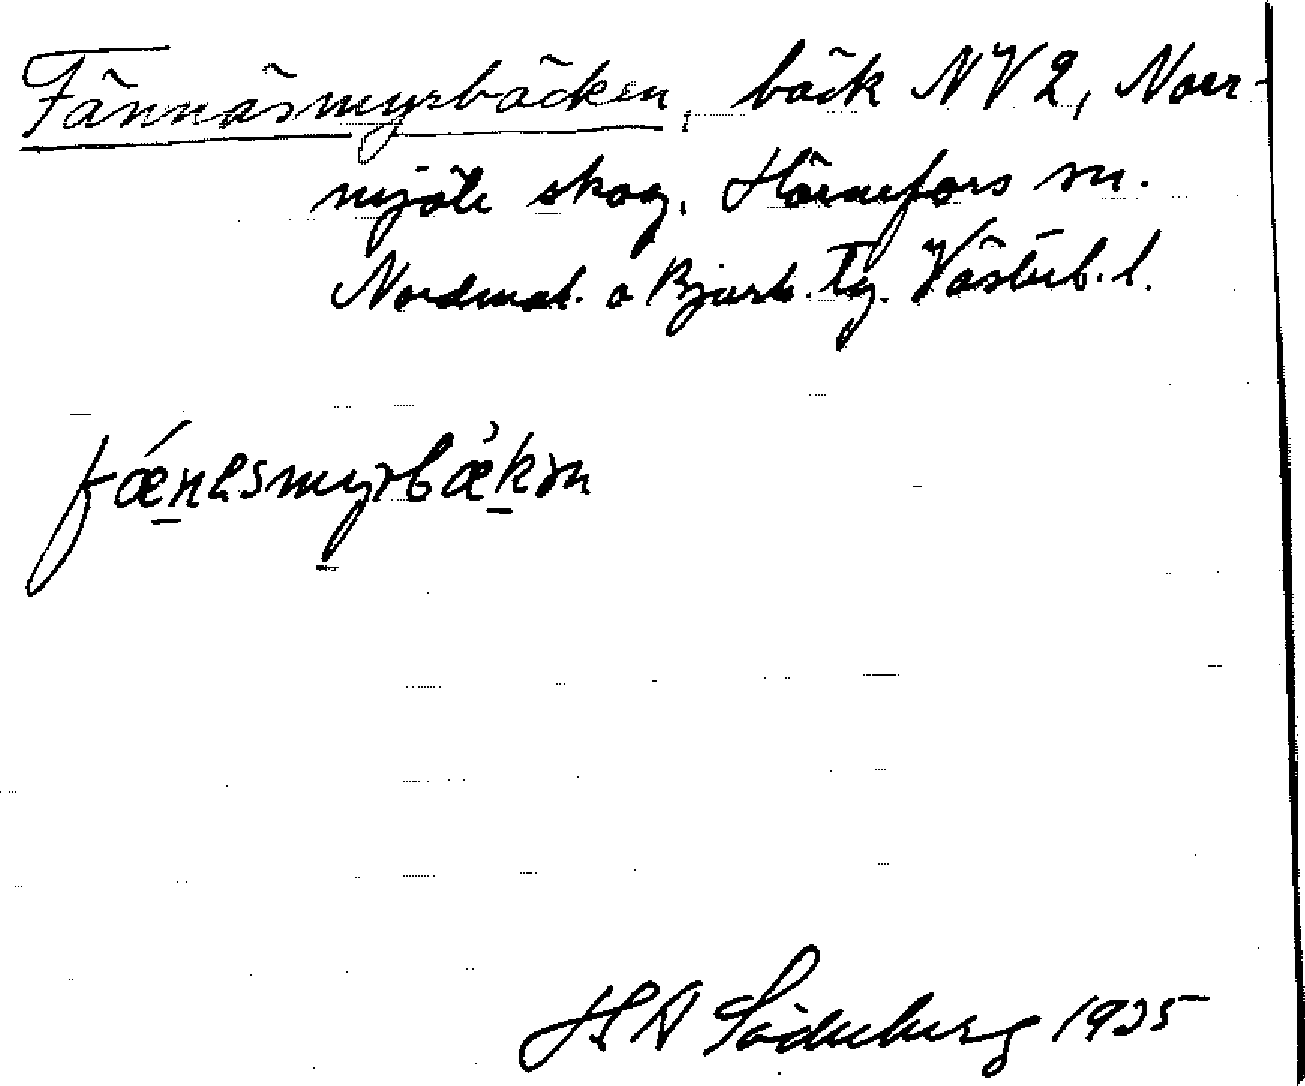 Fännäsmyrbäcken, bäck NV2, Norr-
mjöle skog, Hörnefors sn.
Nordmal. o Bjurh. tg. Västerb. l.
fǽnesmyrbækən
H A Söderberg 1935